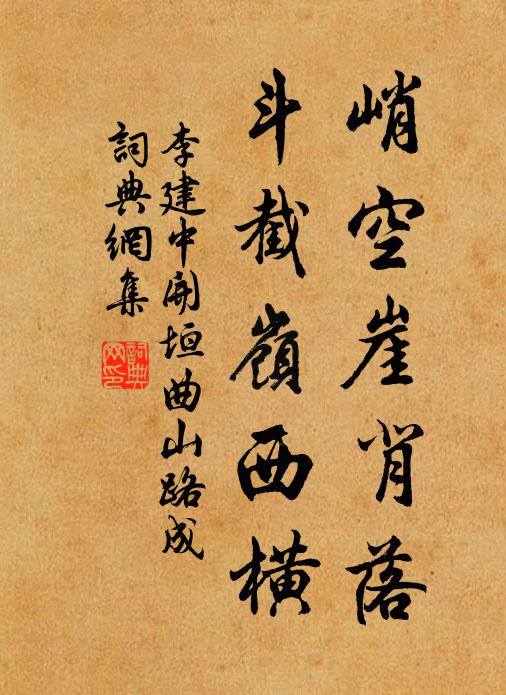 峭空崖肖落
斗截嶺西橫
李建中開垣曲山路成
詞典網集
詞典網印